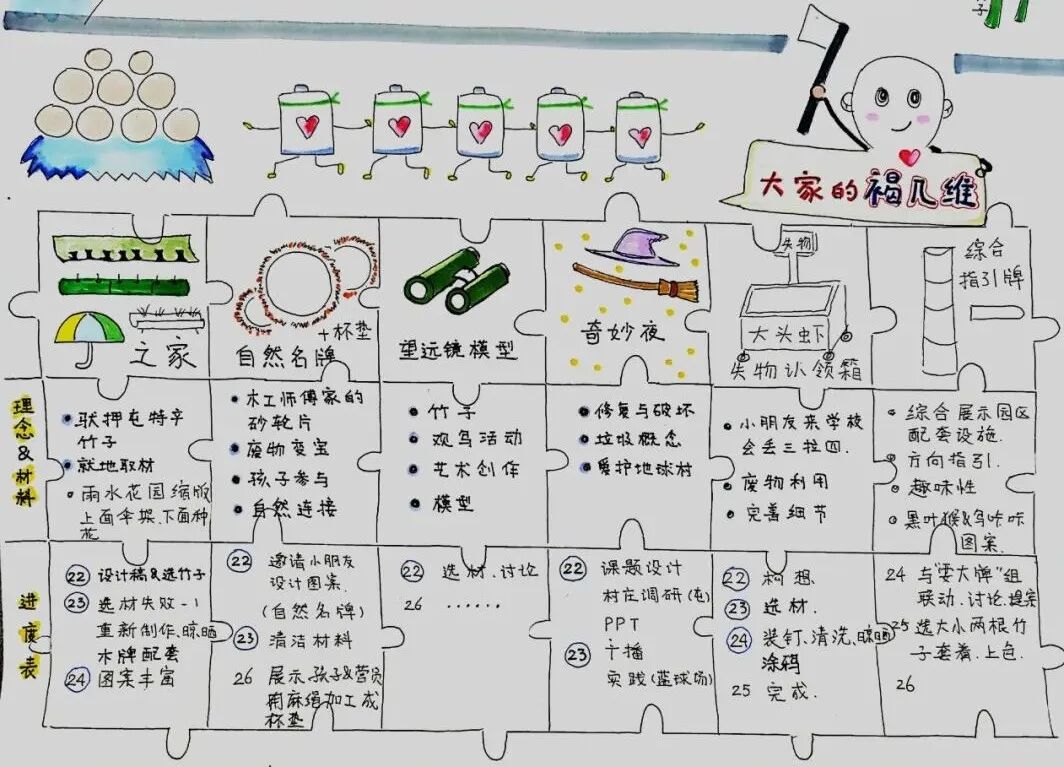 子
大家的褐几维
之家
自然名牌
+杯垫
望远镜模型
奇妙夜
失物
大头虾
失物认领箱
综合
指引牌
理念&材料
驮押屯特辛
竹子
就地取材
雨水花园缩版
上面伞架、下面种
花
木工师傅家的
砂轮片
废物变宝
孩子参与
自然连接
竹子
观鸟活动
艺术创作
模型
修复与破坏
垃圾概念
爱护地球村
小朋友来学校
会丢三拉四.
废物利用
完善细节
综合展示园区
配套设施.
方向指引.
趣味性
黑叶猴&乌吃咔
图案.
进度表
22 设计稿&选竹子
23 选材失败-1
重新制作、晾晒
木牌配套
24 图案丰富
22 邀请小朋友
设计图案.
(自然名牌)
23 清洁材料
26 展示、孩子&营员
用麻绳加工成
杯垫
22 选材、讨论
26 ......
22 课题设计
村庄调研(屯)
PPT
23 广播
实践(蓝球场)
22 构想、
23 选材.
24 装钉、清洗、晾晒
涂鸦
25 完成.
24 与"耍大牌"组
联动、讨论、提案
25 选大小两根竹
子套着、上色.
26